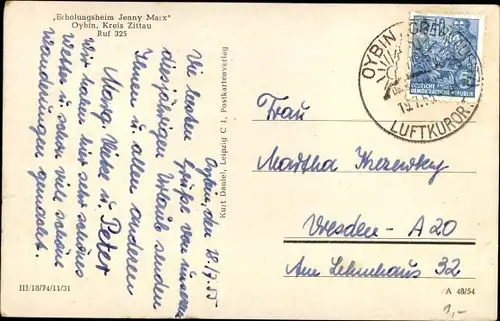 „Erholungsheim Jenny Marx"
Oybin, Kreis Zittau
Ruf 325
Oybin, den 18.7.55
Die besten Grüße von unserem
diesjährigen Urlaub senden
Ihnen u. allen anderen
Marg. u. Peter
Wir haben hier sehr schönes
Wetter u. schon viele schöne
Wanderungen gemacht.
III/18/74/11/31
Kurt Daniel, Leipzig C 1, Postkartenverlag
OYBIN
LUFTKURORT
DEUTSCHE
DEMOKRATISCHE REPUBLIK
Frau
Martha
Dresden - A 20
Am Lehmhaus 32
A 48/54
1,-